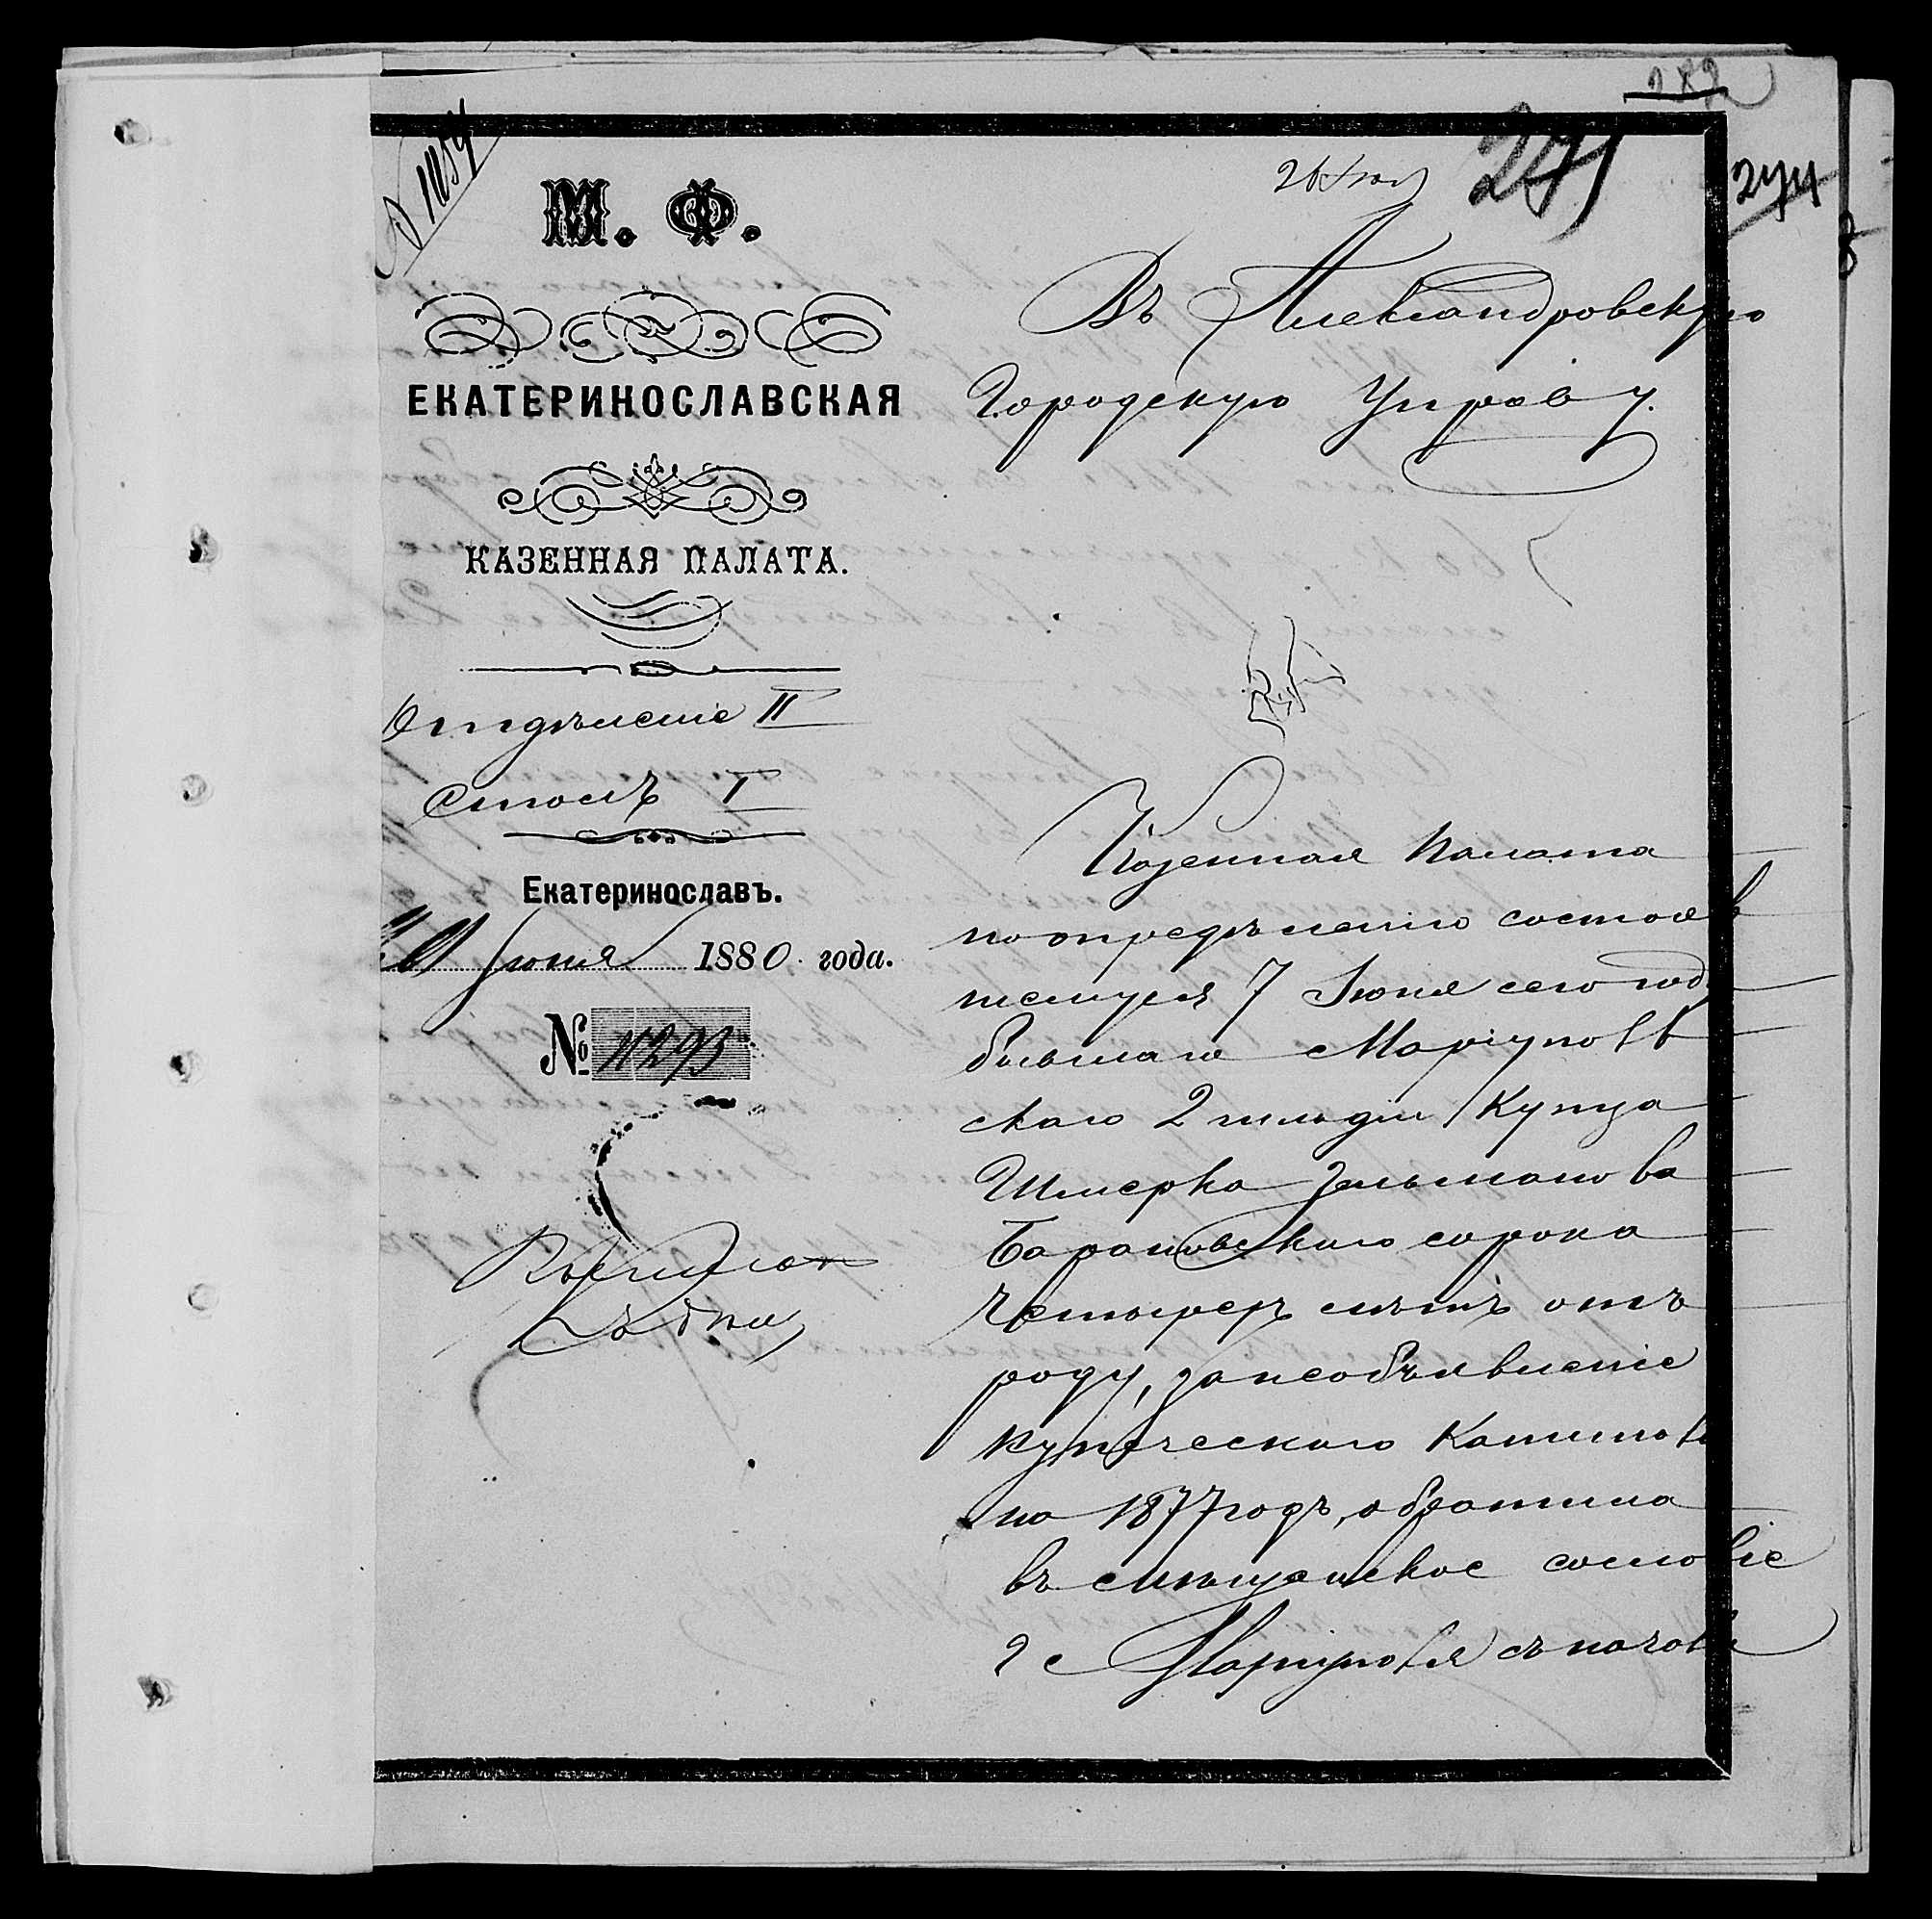 182
271
274
М. Ф.
ЕКАТЕРИНОСЛАВСКАЯ
КАЗЕННАЯ ПАЛАТА.
Отдѣленіе II
Столъ I
Екатеринославъ.
Іюня 1880 года.
№ 11293
Въ Александровскую
Городскую Управу.
Казенная Палата
по опредѣленію состояв
шемуся 7 Іюня сего года
бывшаго Маріуполь
скаго 2 гильдіи Купца
Шмерка Зельманова
Барановскаго сорока
четырехъ лѣтъ отъ
роду, за необъявленіе
купеческаго Капитала
на 1877 годъ, обратила
въ мѣщанское сословіе
г Маріуполя съ начала